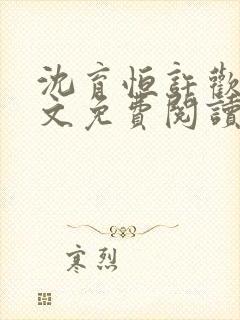 沈育恒許歡
文免費閱讀
寒烈